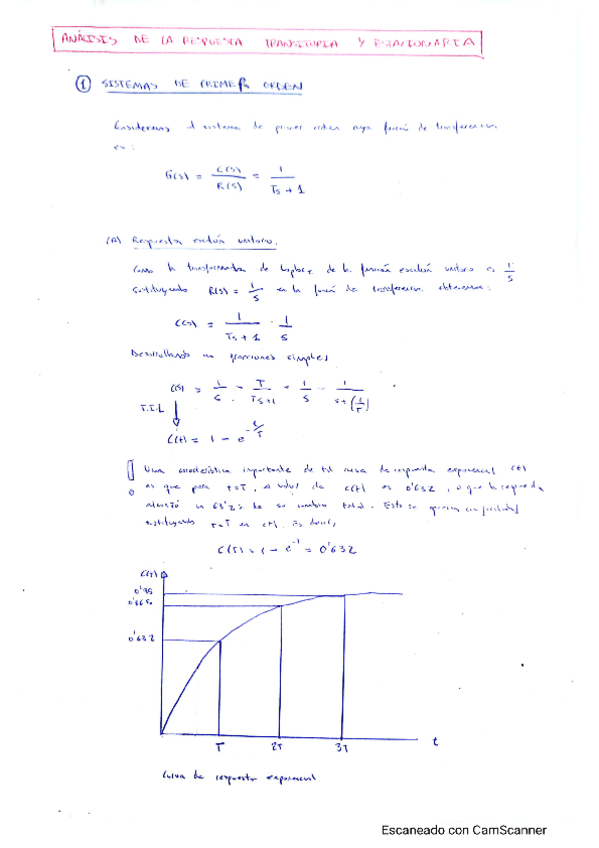 ANÁLISIS DE LA RESPUESTA TRANSITORIA Y ESTACIONARIA
1 SISTEMAS DE PRIMER ORDEN
Consideramos el sistema de primer orden cuya función de transferencia
es:
G(s) = C(s)/R(s) = 1/(Ts+1)
(A) Respuesta escalón unitario.
Como la transformada de Laplace de la función escalón unitario es 1/s
sustituyendo R(s) = 1/s en la función de transferencia obtenemos:
C(s) = 1/(Ts+1) · 1/s
Desarrollando en fracciones simples
C(s) = 1/s - T/(Ts+1) = 1/s - 1/(s+(1/T))
T.I.L
C(t) = 1 - e^(-t/T)
Una característica importante de tal curva de respuesta exponencial C(t)
es que para t=T, el valor de C(t) es 0'632, o que la respuesta
alcanzó un 63'2% de su cambio total. Esto se
sustituyendo t=T en C(t). Es decir,
C(T) = 1 - e^-1 = 0'632
C(t)
0'95
0'865
0'632
T 2T 3T t
Curva de respuesta exponencial
Escaneado con CamScanner